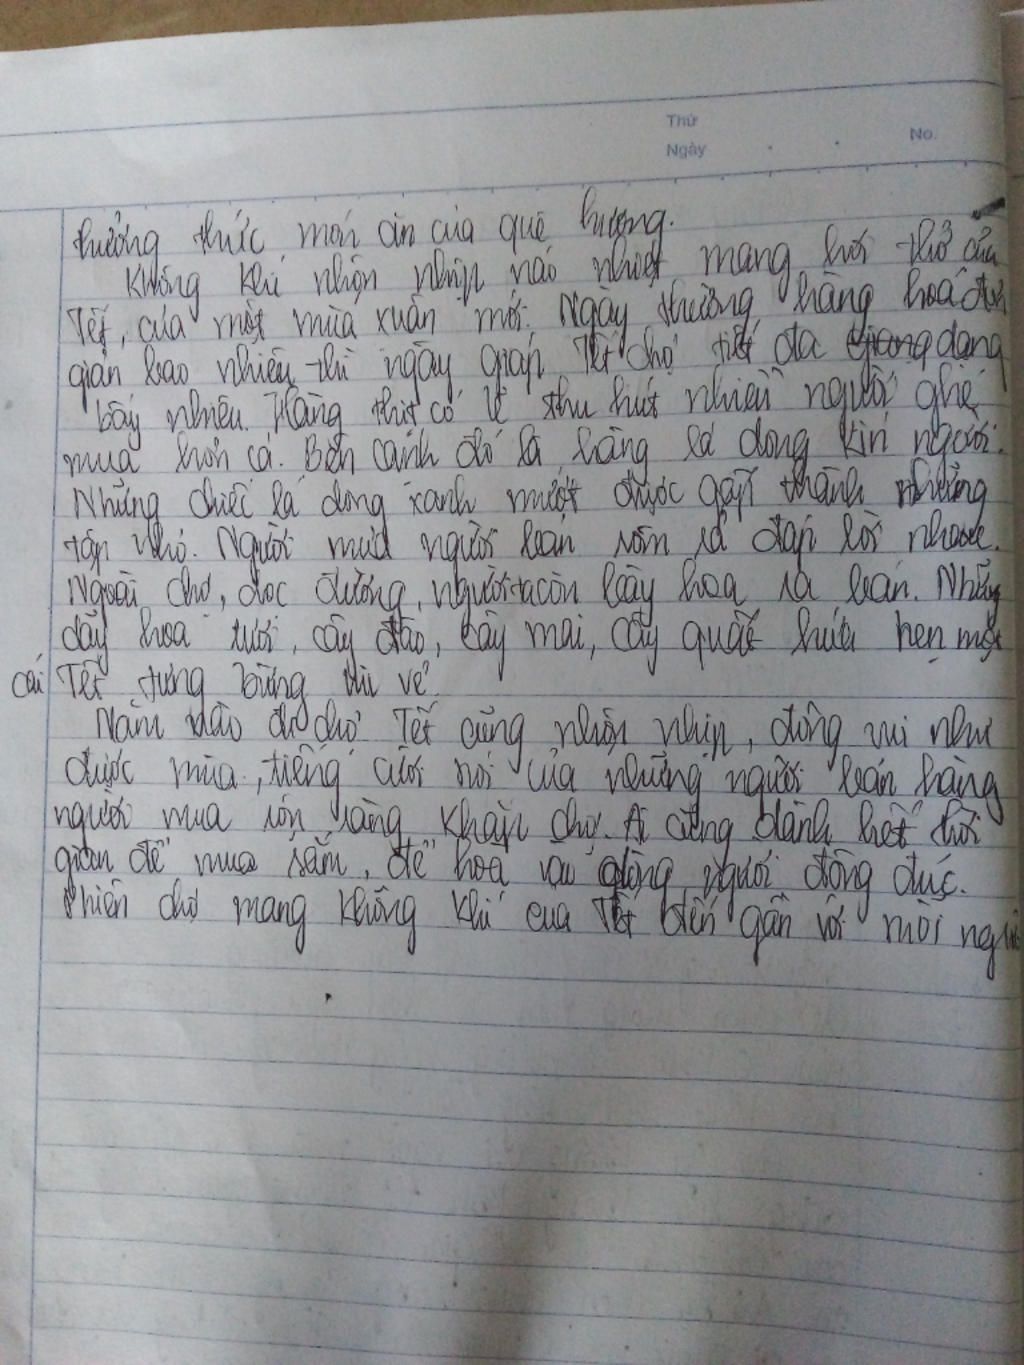 Thứ
Ngày
No.
thưởng thức món ăn của quê hương.
Không khí nhộn nhịp náo nhiệt mang hơi thở của
Tết, của một mùa xuân mới. Ngày thường hàng hoá đơn
giản bao nhiêu thì ngày giáp Tết chợ đa dạng
bấy nhiêu. Hàng thịt có lẽ thu hút nhiều người ghé
mua hơn cả. Bên cạnh đó là hàng lá dong kín người.
Những chiếc lá dong xanh mướt được gấp thành những
tập nhỏ. Người mua người bán rôm rả đáp lời nhau.
Ngoài chợ, dọc đường, người ta còn bày hoa ra bán. Những
dãy hoa tươi, cây đào, cây mai, cây quất hứa hẹn một
cái Tết tưng bừng vui vẻ.
Năm nào đi chợ Tết cũng nhộn nhịp, đông vui như
được mùa, tiếng cười nói của những người bán hàng
người mua rộn ràng khắp chợ. Ai cũng dành hết thời
gian để mua sắm, để hoà vào dòng người đông đúc.
Phiên chợ mang không khí của Tết đến gần với mỗi người